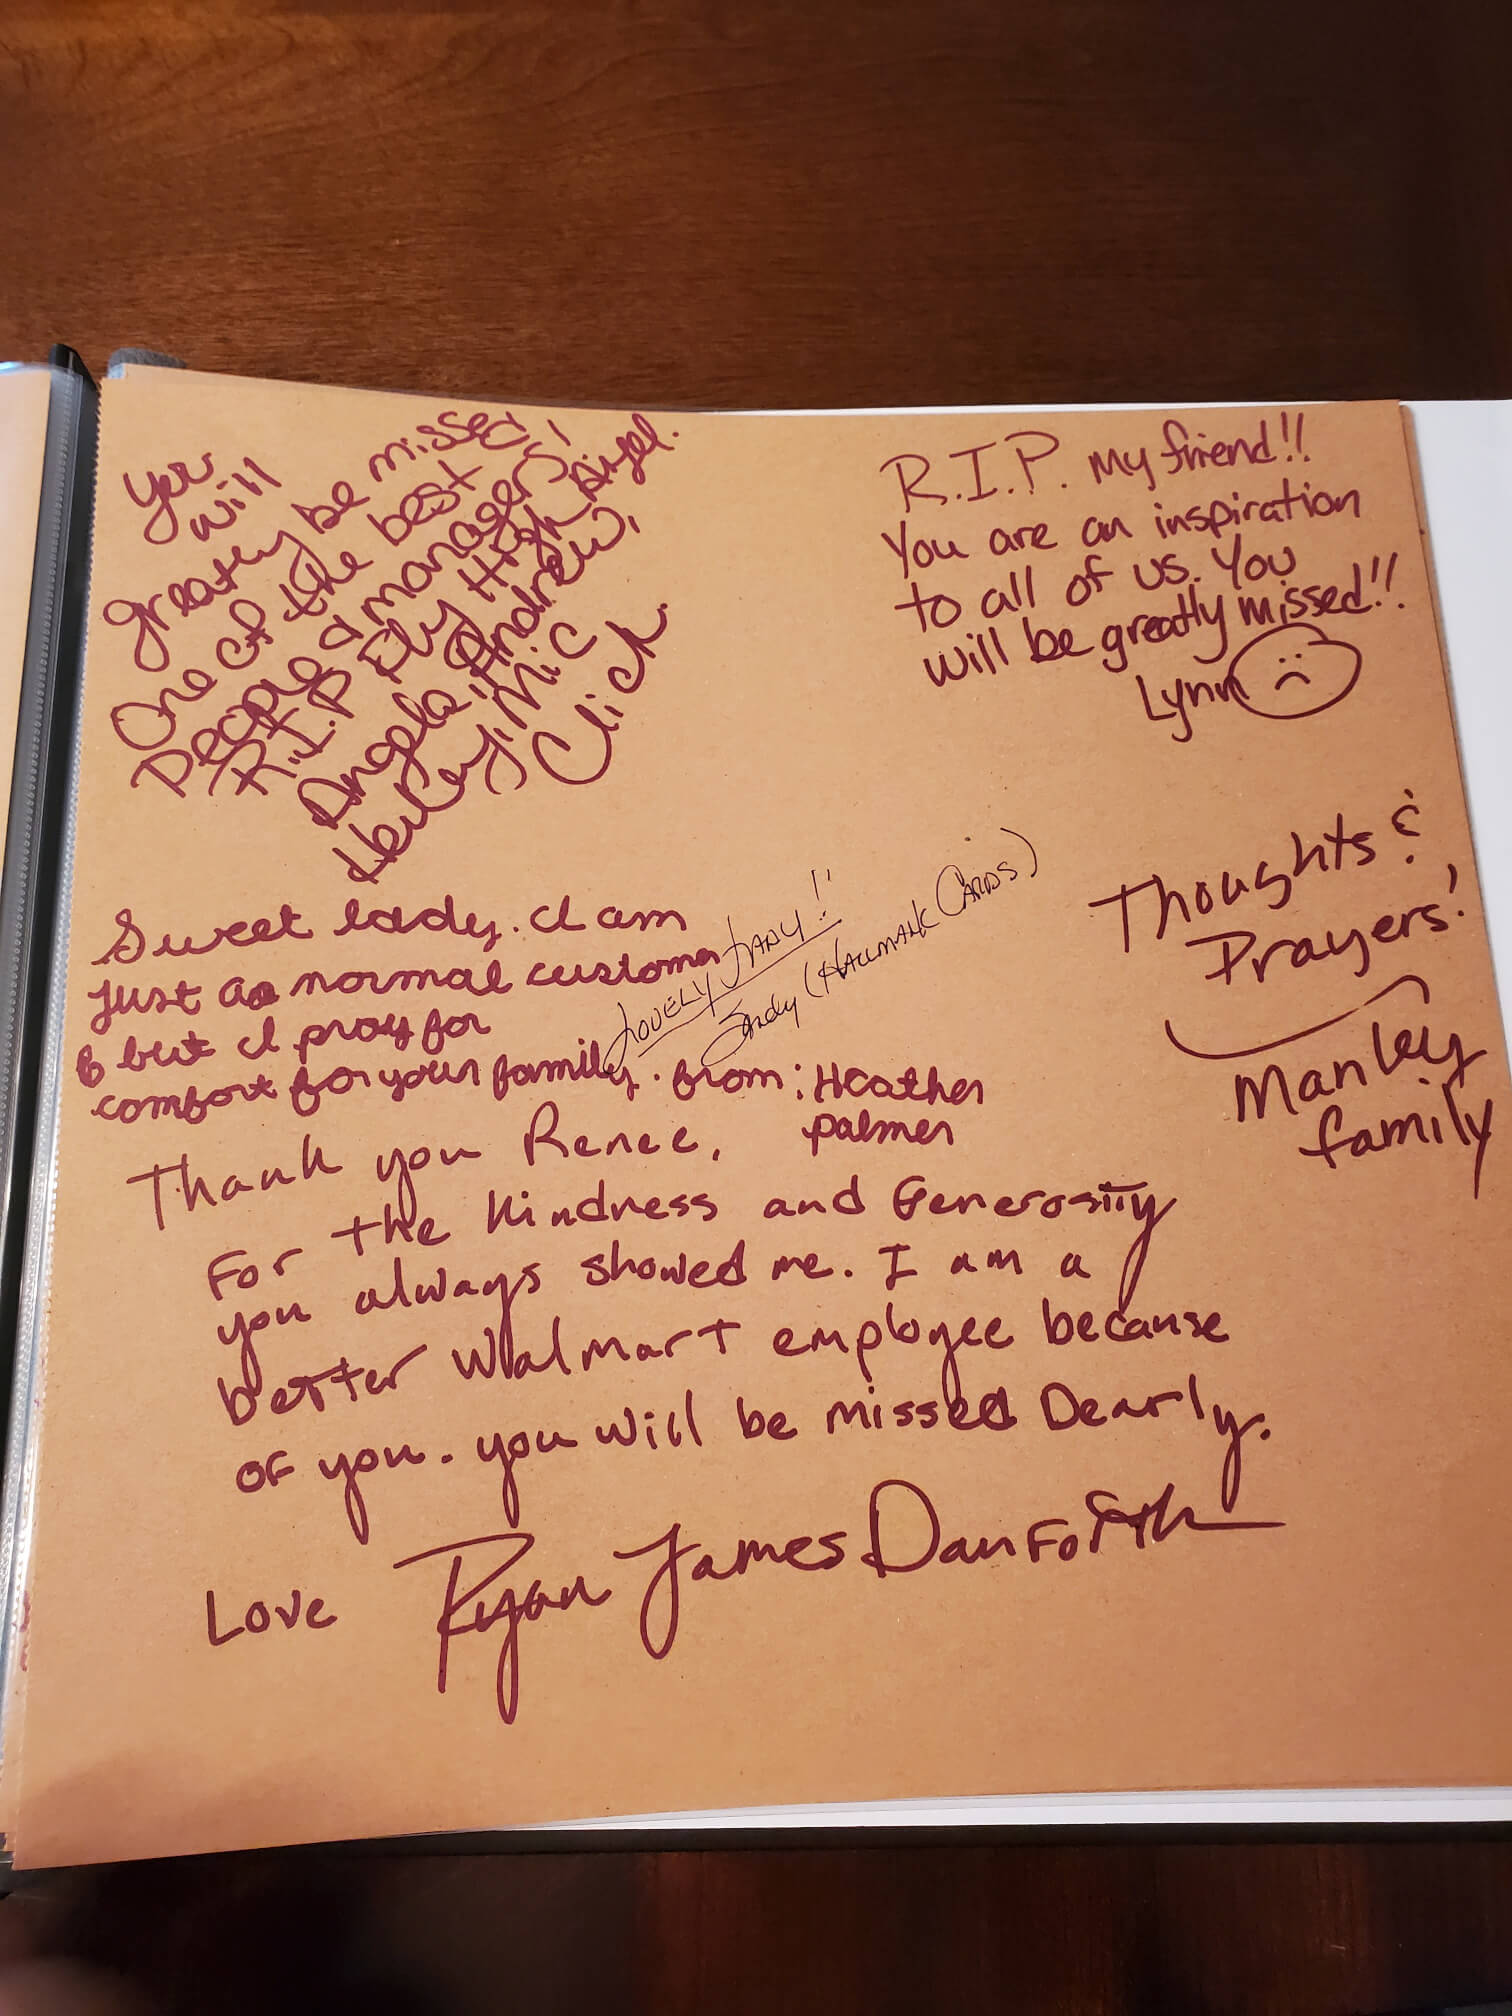 You
will
greatly be missed
One of the best
people & managers!
R.I.P Fly High Angel.
Angela, Andrew,
Haley, Mic
Click
R.I.P. My friend!!
You are an inspiration
to all of us. You
will be greatly missed!!
Lynn
Thoughts &
Prayers!
Manley
family
Sweet lady. I am
just a normal customer
but I pray for
comfort for your family. from: Heather
palmer
Lovely Lady!!
Sandy (Hallmark Cards)
Thank you Renee,
For the Kindness and Generosity
you always showed me. I am a
better Walmart employee because
of you. you will be missed Dearly.
Love Ryan James Danforth